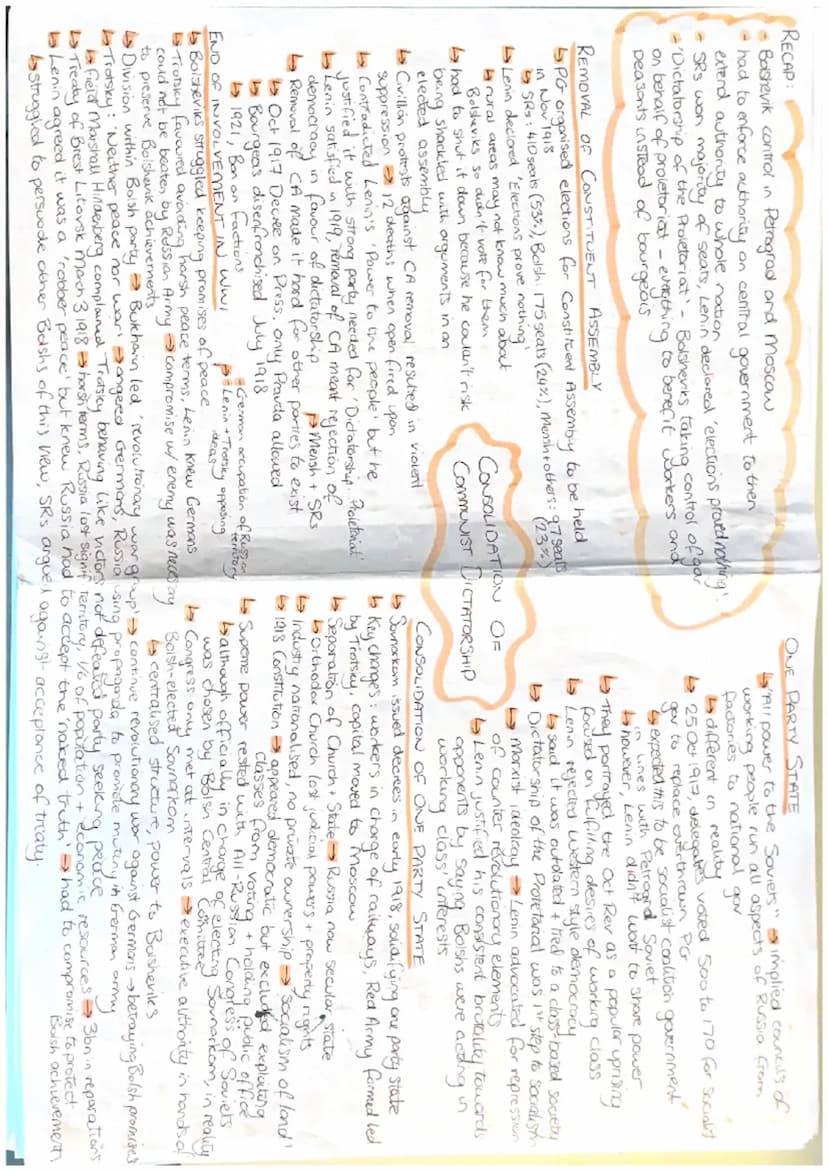 RECAP:
↳ Bolshevik control in Petrograd and Moscow
↳ had to enforce authority on central government to then
extend authority to whole nation
↳ SRs won majority of seats, Lenin declared 'elections proved nothing'.
↳ 'Dictatorship of the Proletariat' - Bolsheviks taking control of gov
on behalf of proletariat - everything to benefit workers and
peasants instead of bourgeois
REMOVAL OF CONSTITUENT ASSEMBLY
↳ PG organised elections for Constituent Assembly to be held
in Nov 1918
↳ SRs: 410 seats (53%), Bolsh: 175 seats (24%), Mensh + others: 97 seats
(23%)
↳ Lenin declared 'Elections prove nothing'
↳ rural areas may not know much about
Bolsheviks so didn't vote for them
↳ had to shut it down because he couldn't risk
being shackled with arguments in an
elected assembly
↳ Civilian protests against CA removal resulted in violent
suppression → 12 deaths when open fired upon
↳ Contradicted Lenin's 'Power to the people' but he
justified it with strong party needed for 'Dictatorship Proletariat'
↳ Lenin satisfied in 1919, removal of CA meant rejection of
democracy in favour of dictatorship
↳ Removal of CA made it hard for other parties to exist
↳ Mensh + SRs
↳ Oct 1917 Decree on Press, only Pravda allowed
↳ Bourgeois disenfranchised July 1918
↳ 1921, Ban on factions
END OF INVOLVEMENT IN WW1
↳ German occupation of Russian
territory
↳ Lenin + Trotsky opposing
ideas
↳ Bolsheviks struggled keeping promises of peace
↳ Trotsky favoured avoiding harsh peace terms, Lenin knew Germans
could not be beaten by Russian Army → compromise w/ enemy was necessary
to preserve Bolshevik achievements
↳ Division within Bolsh party → Bukharin led 'revolutionary war group' → continue revolutionary war against Germans → betraying Bolsh promises
↳ Trotsky: 'Neither peace nor war' → angered Germans, Russia using propaganda to promote mutiny in German army
↳ Field Marshall Hindenberg complained Trotsky behaving like victors not defeated party seeking peace
↳ Treaty of Brest Litovsk March 3 1918 → harsh terms, Russia lost signif. territory, 1/6 of population + economic resources → 3bn in reparations
↳ Lenin agreed it was a 'robber peace' but knew Russia had to accept the 'naked truth' → had to compromise to protect
Bolsh achievement
↳ struggled to persuade other Bolshs of this view, SRs argued against acceptance of treaty.
CONSOLIDATION OF
COMMUNIST DICTATORSHIP
ONE PARTY STATE
↳ "All power to the Soviets" → implied councils of
working people run all aspects of Russia from
factories to national gov
↳ different in reality
↳ 25 Oct 1917, delegates voted 500 to 170 for socialist
gov to replace overthrown PG
↳ expected this to be socialist coalition government
in lines with Petrograd Soviet
↳ however, Lenin didn't want to share power
↳ They portrayed the Oct Rev as a popular uprising
focused on fulfilling desires of working class
↳ Lenin rejected Western style democracy
↳ said it was outdated + tied to a class-based society
↳ Dictatorship of the Proletariat was 1st step to socialism
↳ Marxist ideology → Lenin advocated for repression
of counter revolutionary elements
↳ Lenin justified his consistent brutality towards
opponents by saying Bolshs were acting in
working class' interests
CONSOLIDATION OF ONE PARTY STATE
↳ Sovnarkom issued decrees in early 1918, solidifying one party state
↳ Key changes: workers in charge of railways, Red Army formed led
by Trotsky, capital moved to Moscow
↳ Separation of Church + State → Russia now secular state
↳ Orthodox Church lost judicial powers + property rights
↳ Industry nationalised, no private ownership → 'socialism of land'
↳ 1918 Constitution → appeared democratic but excluded exploiting
classes from voting + holding public office
↳ Supreme power rested with All-Russian Congress of Soviets
↳ although officially in charge of electing Sovnarkom, in reality
was chosen by Bolsh Central Committee
↳ Congress only met at intervals → executive authority in hands of
Bolsh-elected Sovnarkom
↳ centralised structure, power to Bolsheviks